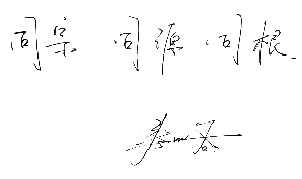 同宗 同源 同根